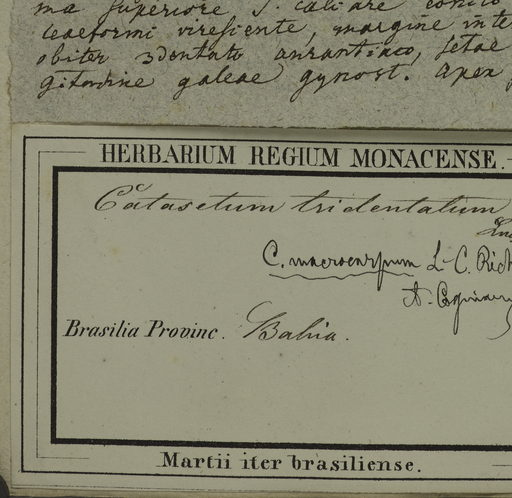 ma superiore s. calcare conico
leaeformi virescente, margine inte
obiter 3dentato aurantiaco, setae
galeae gynost. apex
HERBARIUM REGIUM MONACENSE.
Catasetum tridentatum
C. macrocarpum L. C. Rich
A. Cogniaux
Brasilia Provinc. Bahia.
Martii iter brasiliense.